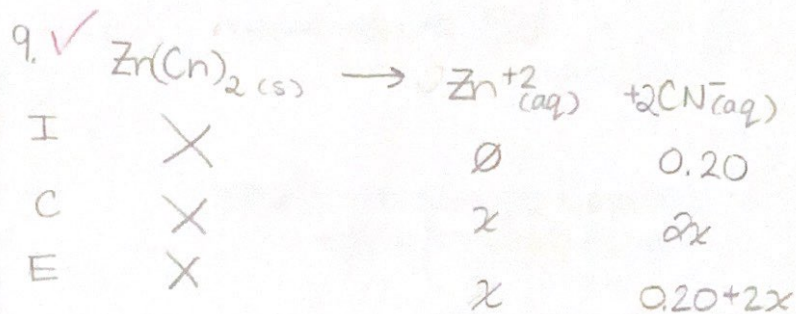 9. ✓ Zn(Cn)₂ (s) → Zn⁺² (aq) +2CN⁻(aq)
I X Ø 0.20
C X x 2x
E X x 0.20+2x